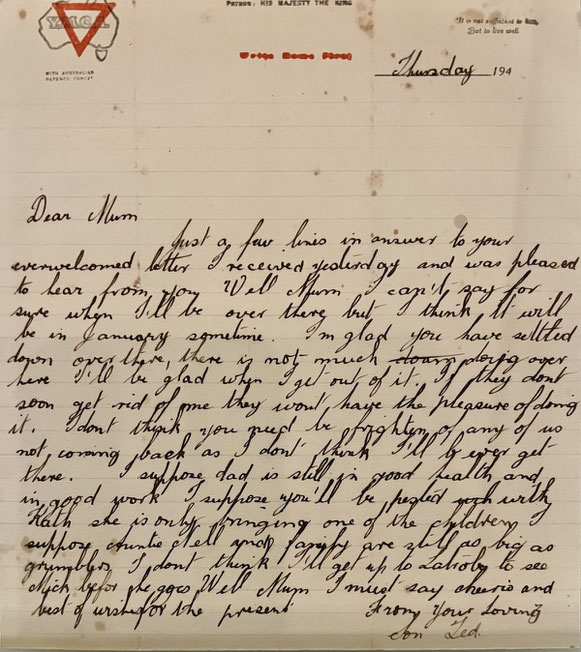 PATRON: HIS MAJESTY THE KING
Y.M.C.A.
WITH AUSTRALIAN
DEFENCE FORCES
Write Home First
"It is not sufficient to
But to live well
Thursday 194
Dear Mum
Just a few lines in answer to your
everwelcomed letter I received yesterday and was pleased
to hear from you Well Mum I can't say for
sure when I'll be over there but I think it will
be in January sometime. I'm glad you have settled
down over there, there is not much doing over
here I'll be glad when I get out of it. If they dont
soon get rid of me they wont have the pleasure of doing
it. I dont think you need be frighten of any of us
not coming back as I dont think I'll ever get
there. I suppose dad is still in good health and
in good work I suppose you'll be with
Kath she is only bringing one of the children I
suppose auntie Nell and family are still as big as
grumblers, I dont think I'll get up to to see
Mick before he goes Well Mum I must say cheerio and
best of wishes for the present From Your Loving
Son Ted.